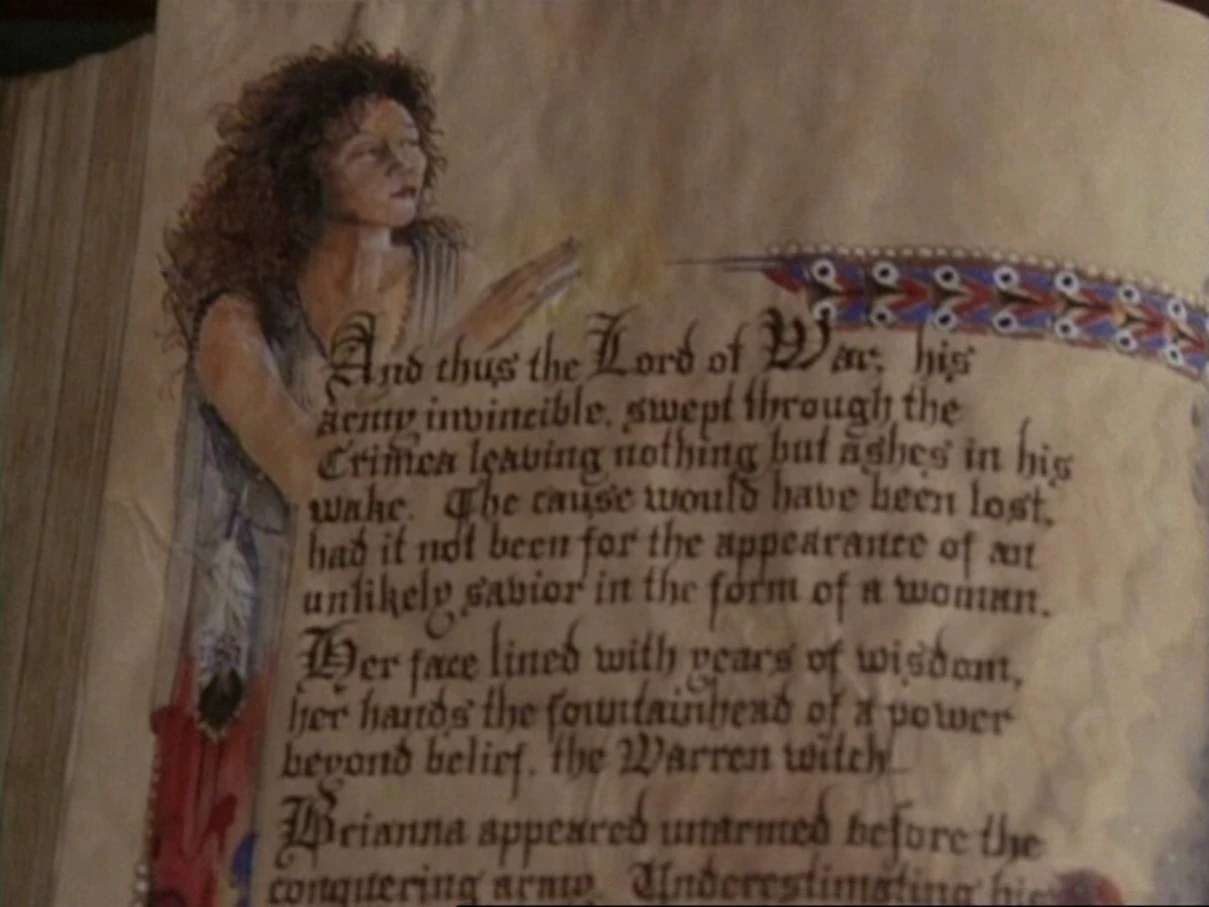 And thus the Lord of War, his
army invincible, swept through the
Crimea leaving nothing but ashes in his
wake. The cause would have been lost,
had it not been for the appearance of an
unlikely savior in the form of a woman.
Her face lined with years of wisdom,
her hands the fountainhead of a power
beyond belief, the Warren witch
Brianna appeared unarmed before the
conquering army. Underestimating his